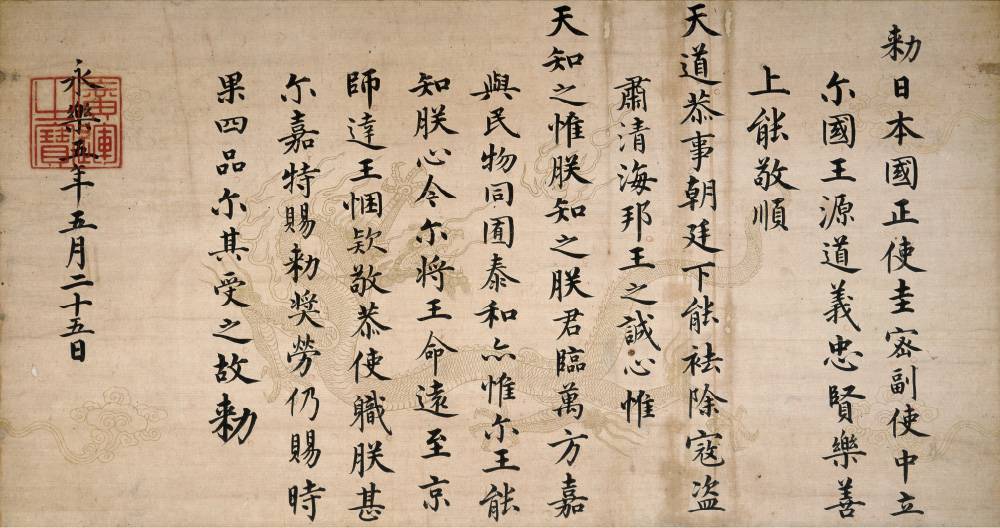 勅日本國正使圭宻副使中立
尓國王源道義忠賢樂善
上能敬順
天道恭事朝廷下能祛除寇盗
肅清海邦王之誠心惟
天知之惟朕知之朕君臨萬方嘉
與民物同囿泰和亦惟尓王能
知朕心今尓将王命遠至京
師達王悃欵敬恭使職朕甚
尓嘉特賜勅奨勞仍賜時
果四品尓其受之故勅
永樂五年五月二十五日
廣運之寶